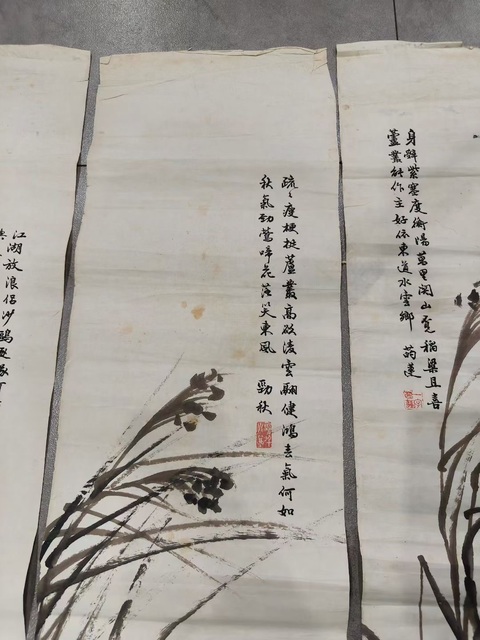 身辭紫塞度衡陽萬里関山覓稻粱且喜
蘆叢能作主好依東道水雲鄉
疏〻瘦梗挺蘆叢高欲凌雲翮健鴻春氣何如
秋氣勁鶯啼花落笑東風 勁秋
江湖放浪侶沙鷗